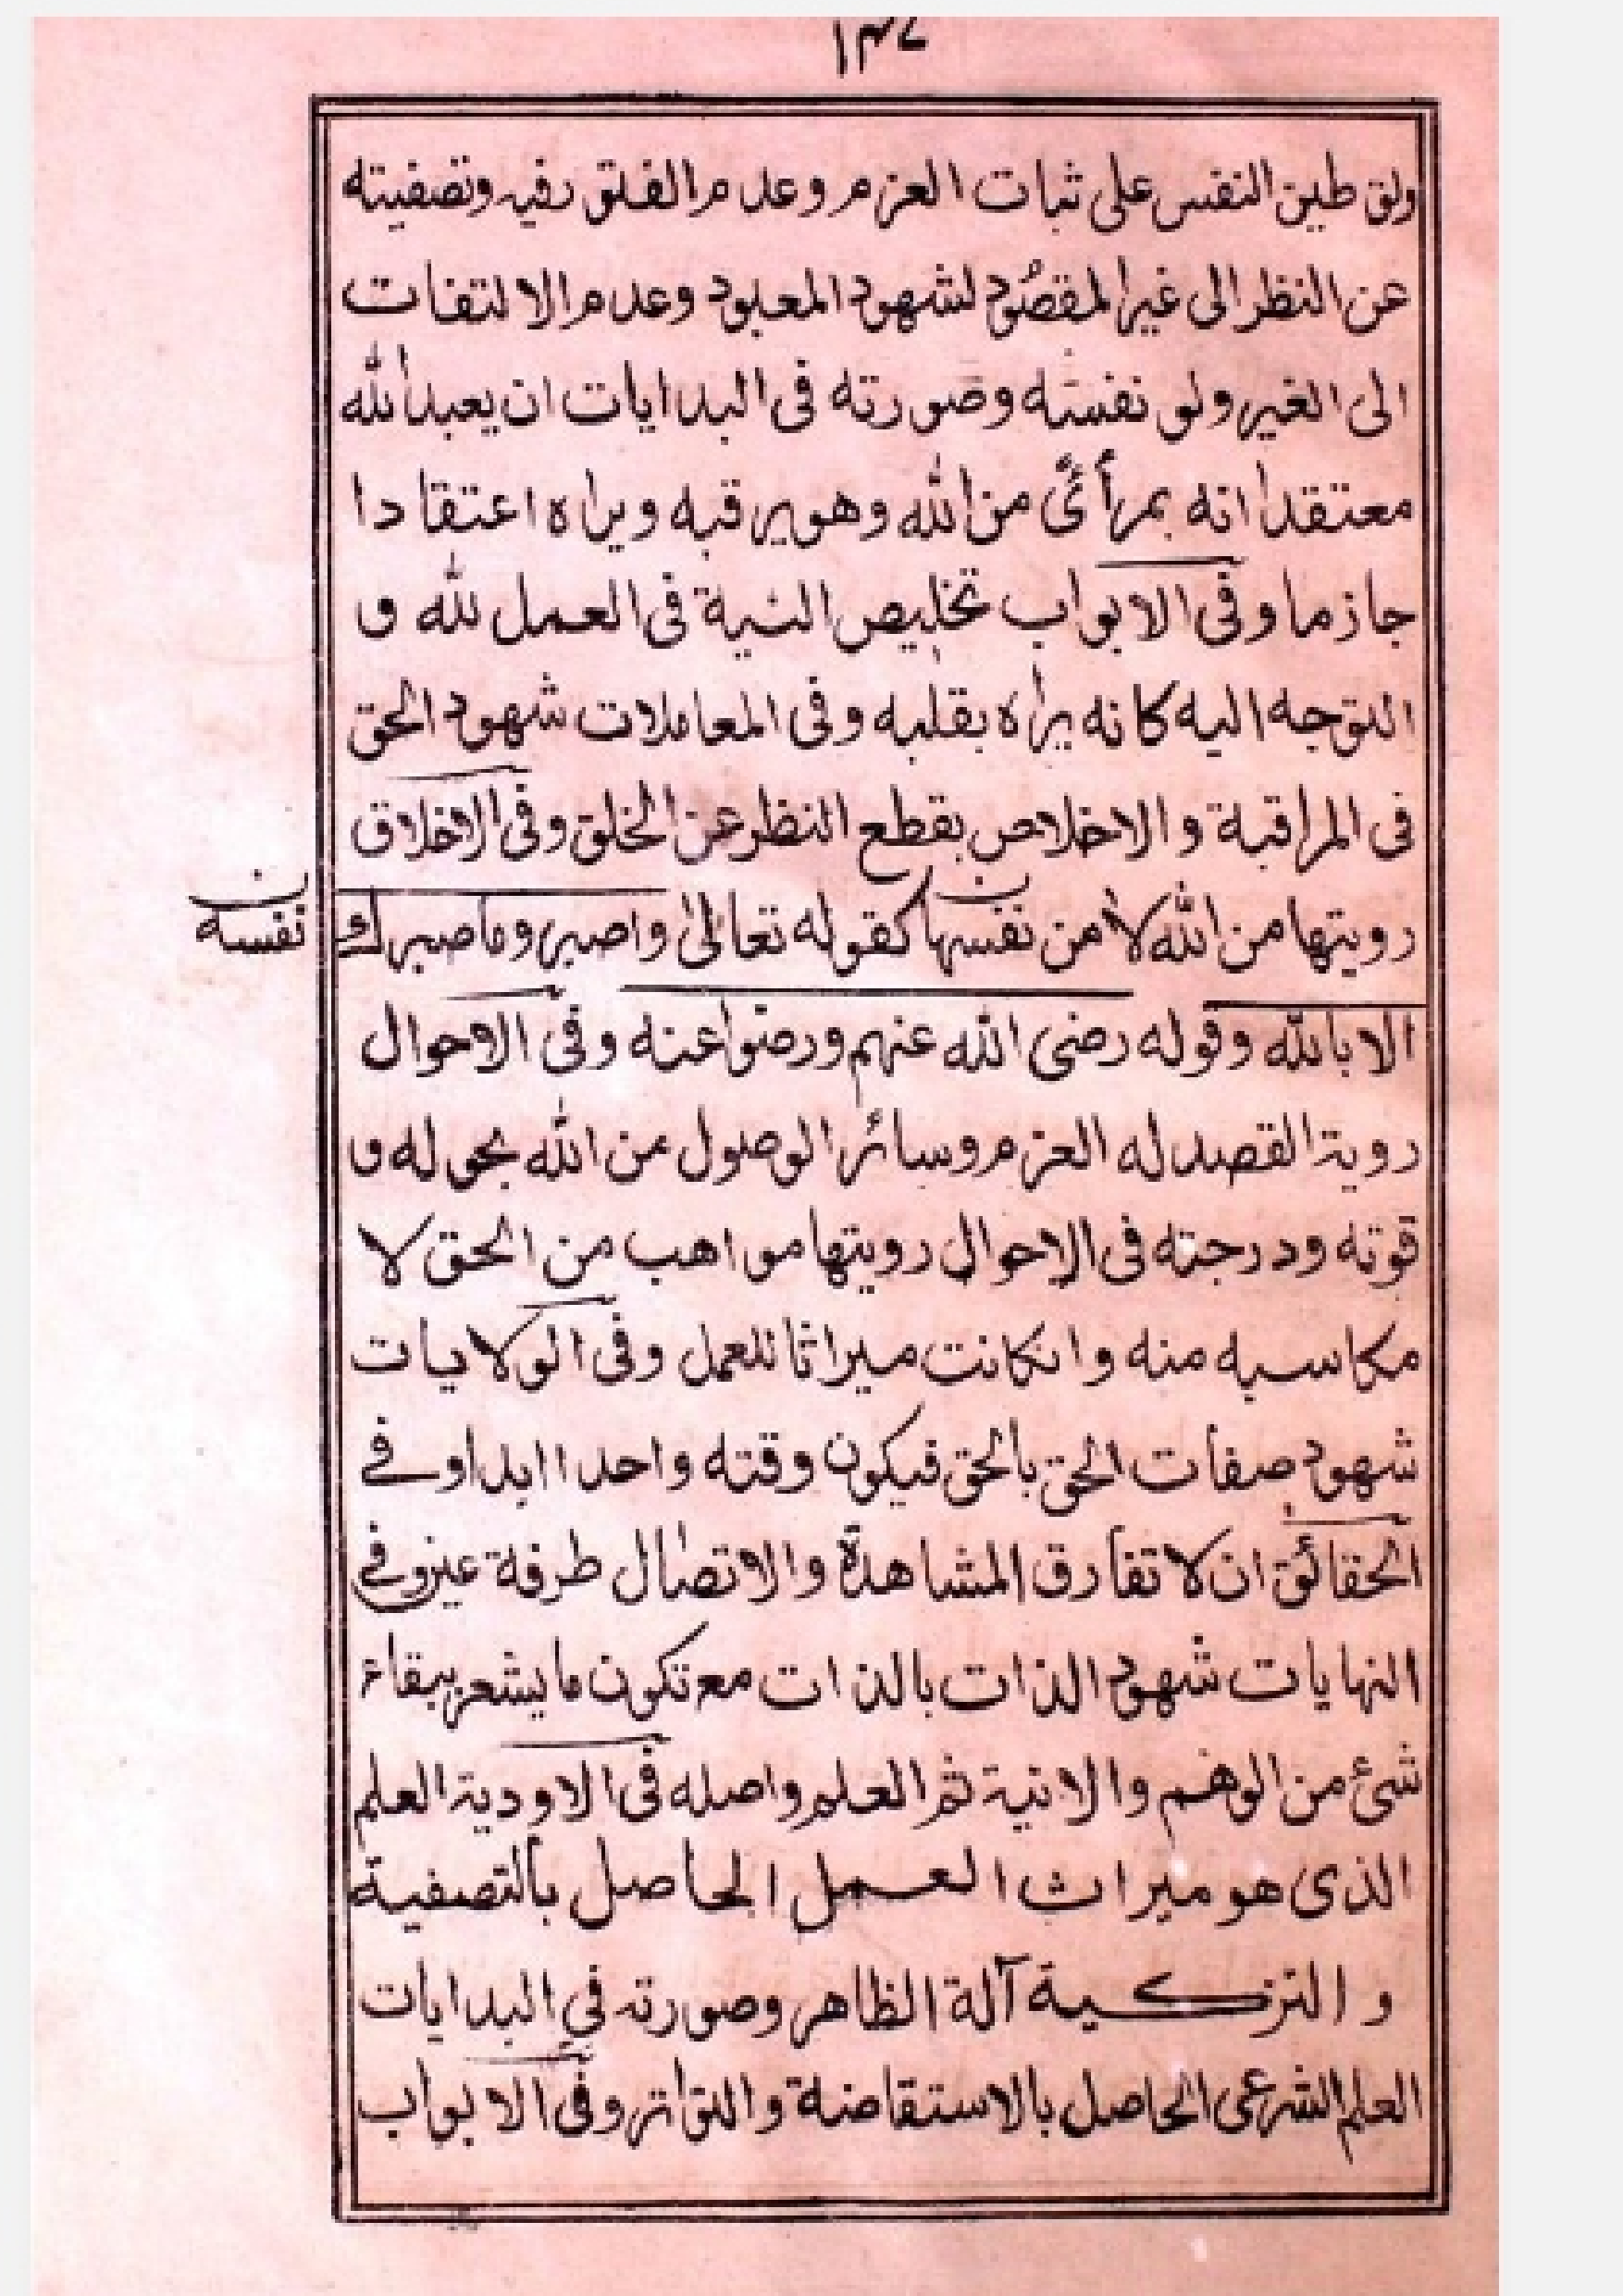 ۱۴۷
ولق طين النفس على ثبات العزم وعدم الفلق رفيه وتصفيته
عن النظر الى غير المقصُود لشهود المعبود وعدم الالتفات
الى الغير ولو نفسه وصورته فى البدايات ان يعبد الله
معتقدا انه بمرأىً من الله وهو يرقبه ويراه اعتقادا
جازما وفى الابواب تخليص النية فى العمل لله و
التوجه اليه كانه يراه بقلبه وفى المعاملات شهود الحق
فى المراقبة والاخلاص بقطع النظر عن الخلق وفى الاخلاق
رويتها من الله لا من نفسها كقوله تعالىٰ واصبر وما صبرك
ن
نفسه
الا بالله وقوله رضى الله عنهم ورضوا عنه وفى الاحوال
روية القصد له العزم وسائر الوصول من الله بحوله و
قوته ودرجته فى الاحوال رويتها مواهب من الحق لا
مكاسبه منه وانكانت ميراثا للعمل وفى الولايات
شهود صفات الحق بالحق فيكون وقته واحدا ابدا وفے
الحقائق ان لا تفارق المشاهدة والاتصال طرفة عين وفى
النهايات شهود الذات بالذات مع تكون ما يشعر ببقاء
شئ من الوهم والانية ثم العلم واصله فى الاودية العلم
الذى هو ميراث العمل الحاصل بالتصفية
و التزكية آلة الظاهر وصورته في البدايات
العلم الشرعى الحاصل بالاستقاضة والتواتر وفى الابواب